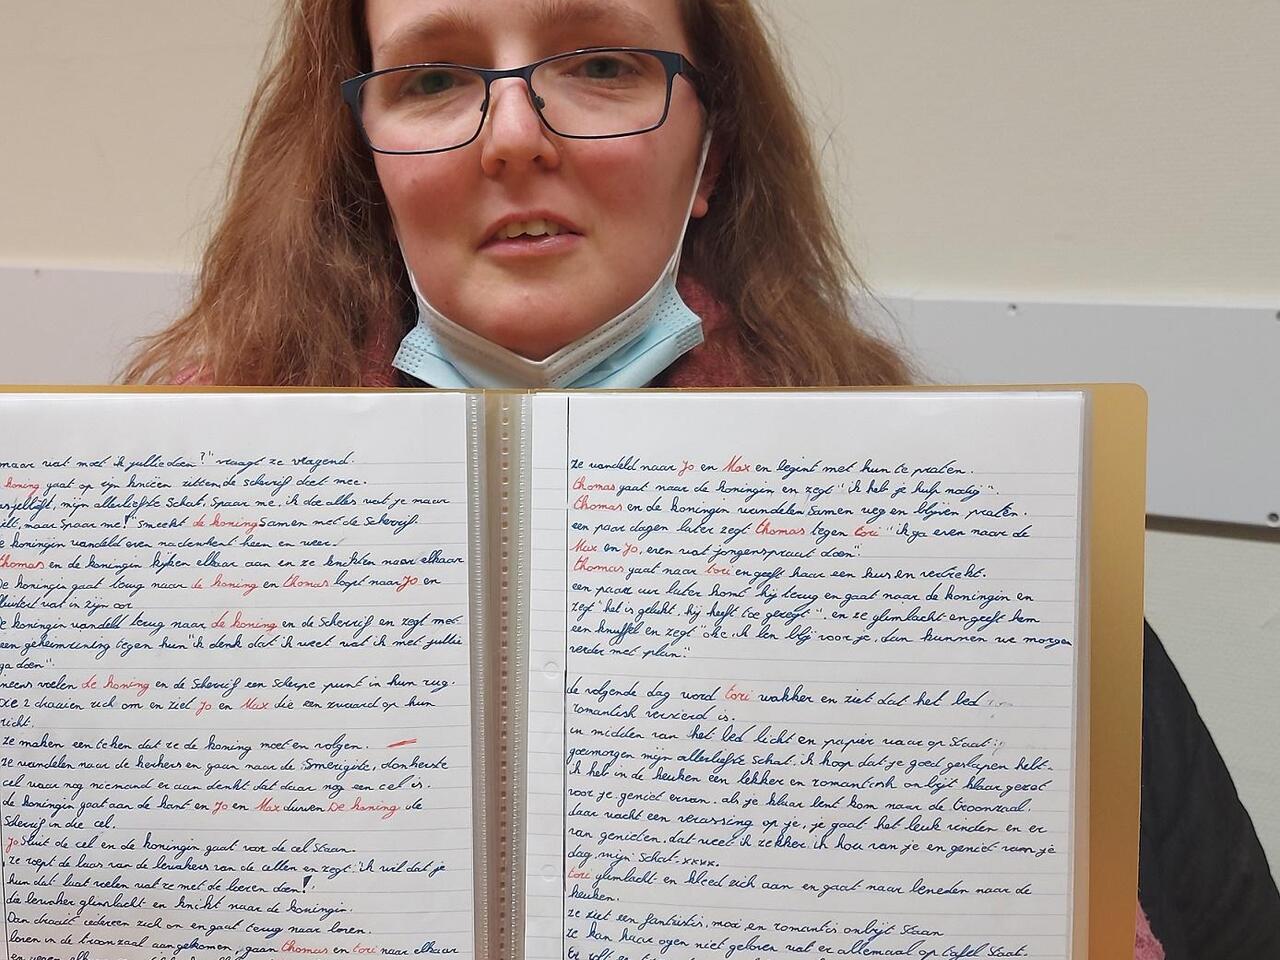 maar wat moet ik jullie doen?" vraagt ze vragend.
koning gaat op zijn knieën zitten, de scherrif doet mee.
mijn allerliefste schat, spaar me, ik doe alles wat je maar
wilt, maar spaar me!" smeekt de koning samen met de scherrif.
de koningin wandeld even nadenkent heen en weer.
thomas en de koningin kijken elkaar aan en ze knikten naar elkaar
De koningin gaat terug naar de koning en thomas loopt naar Jo en
fluistert wat in zijn oor
De koningin wandeld terug naar de koning en de scherrif en zegt met
een geheimzinnig tegen hun "ik denk dat ik weet wat ik met jullie
ga doen".
ineens voelen de koning en de scherrif een scherpe punt in hun rug.
De 2 draaien zich om en ziet Jo en Max die een zwaard op hun
richt.
ze maken een teken dat ze de koning moeten volgen.
ze wandelen naar de kerkers en gaan naar de smerigste, donkerste
cel waar nog niemand er aan denkt dat daar nog een cel is.
de koningin gaat aan de kant en Jo en Max duwen De koning de
scherrif in die cel.
Jo sluit de cel en de koningin gaat voor de cel staan.
ze roept de baas van de bewakers van de cellen en zegt "ik wil dat je
hun dat laat voelen wat ze met de boeren doen!"
die bewaker glimlacht en knikt naar de koningin.
Dan draait iedereen zich om en gaat terug naar boven.
boven in de troonzaal aangekomen, gaan thomas en tori naar elkaar
ze wandeld naar Jo en Max en begint met hun te praten.
thomas gaat naar de koningin en zegt "ik heb je hulp nodig".
thomas en de koningin wandelen samen weg en blijven praten.
een paar dagen later zegt thomas tegen tori "ik ga even naar de
Max en Jo, even wat jongenspraat doen".
thomas gaat naar tori en geeft haar een kus en vertrekt.
een paar uur later komt hij terug en gaat naar de koningin en
zegt "het is gelukt, hij heeft toe gezegt". en ze glimlacht en geeft hem
een knuffel en zegt "oke, ik ben blij voor je, dan kunnen we morgen
verder met plan."
de volgende dag word tori wakker en ziet dat het bed
romantish versierd is.
in midden van het bed licht en papier waar op staat:
goemorgen mijn allerliefste schat, ik hoop dat je goed geslapen hebt.
ik heb in de keuken een lekker en romantish onbijt klaar gezet
voor je, geniet ervan. als je klaar bent kom naar de troonzaal.
daar wacht een verassing op je, je gaat het leuk vinden en er
van genieten, dat weet ik zekker. ik hou van je en geniet van je
dag, mijn schat. xxxx.
tori glimlacht en kleed zich aan en gaat naar beneden naar de
keuken.
ze ziet een fantastis, mooi en romantis onbijt staan
ze kan haar ogen niet geloven wat er allemaal op tafel staat.